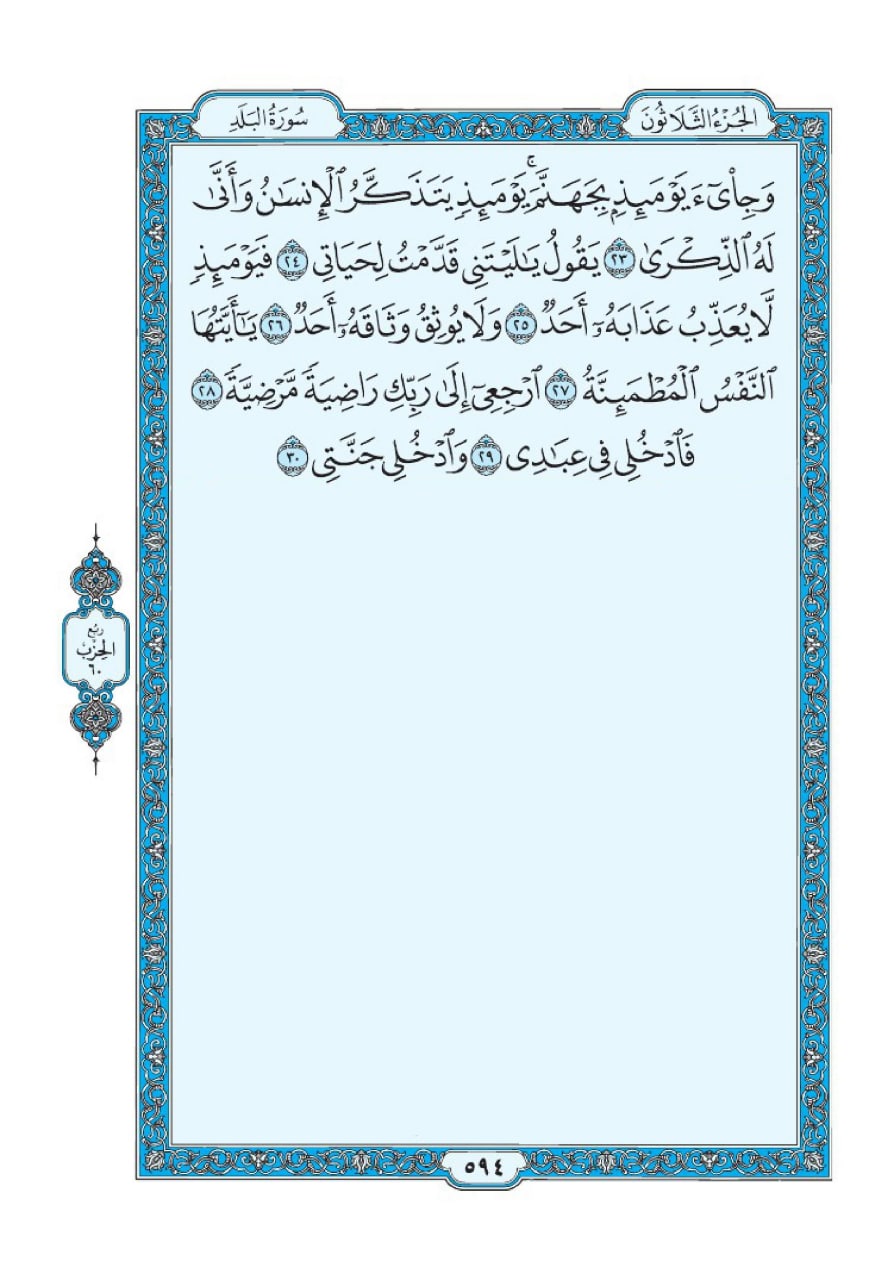 الجُزْءُ الثَّلَاثُونَ
سُورَةُ البَلَدِ
وَجِاْيٓءَ يَوْمَئِذِۭ بِجَهَنَّمَۚ يَوْمَئِذٖ يَتَذَكَّرُ ٱلْإِنسَٰنُ وَأَنَّىٰ
لَهُ ٱلذِّكْرَىٰ ٢٣ يَقُولُ يَٰلَيْتَنِي قَدَّمْتُ لِحَيَاتِي ٢٤ فَيَوْمَئِذٖ
لَّا يُعَذِّبُ عَذَابَهُۥٓ أَحَدٞ ٢٥ وَلَا يُوثِقُ وَثَاقَهُۥٓ أَحَدٞ ٢٦ يَٰٓأَيَّتُهَا
ٱلنَّفْسُ ٱلْمُطْمَئِنَّةُ ٢٧ ٱرْجِعِيٓ إِلَىٰ رَبِّكِ رَاضِيَةٗ مَّرْضِيَّةٗ ٢٨
فَٱدْخُلِي فِي عِبَٰدِي ٢٩ وَٱدْخُلِي جَنَّتِي ٣٠
رُبُع
الحِزْب
٦٠
٥٩٤